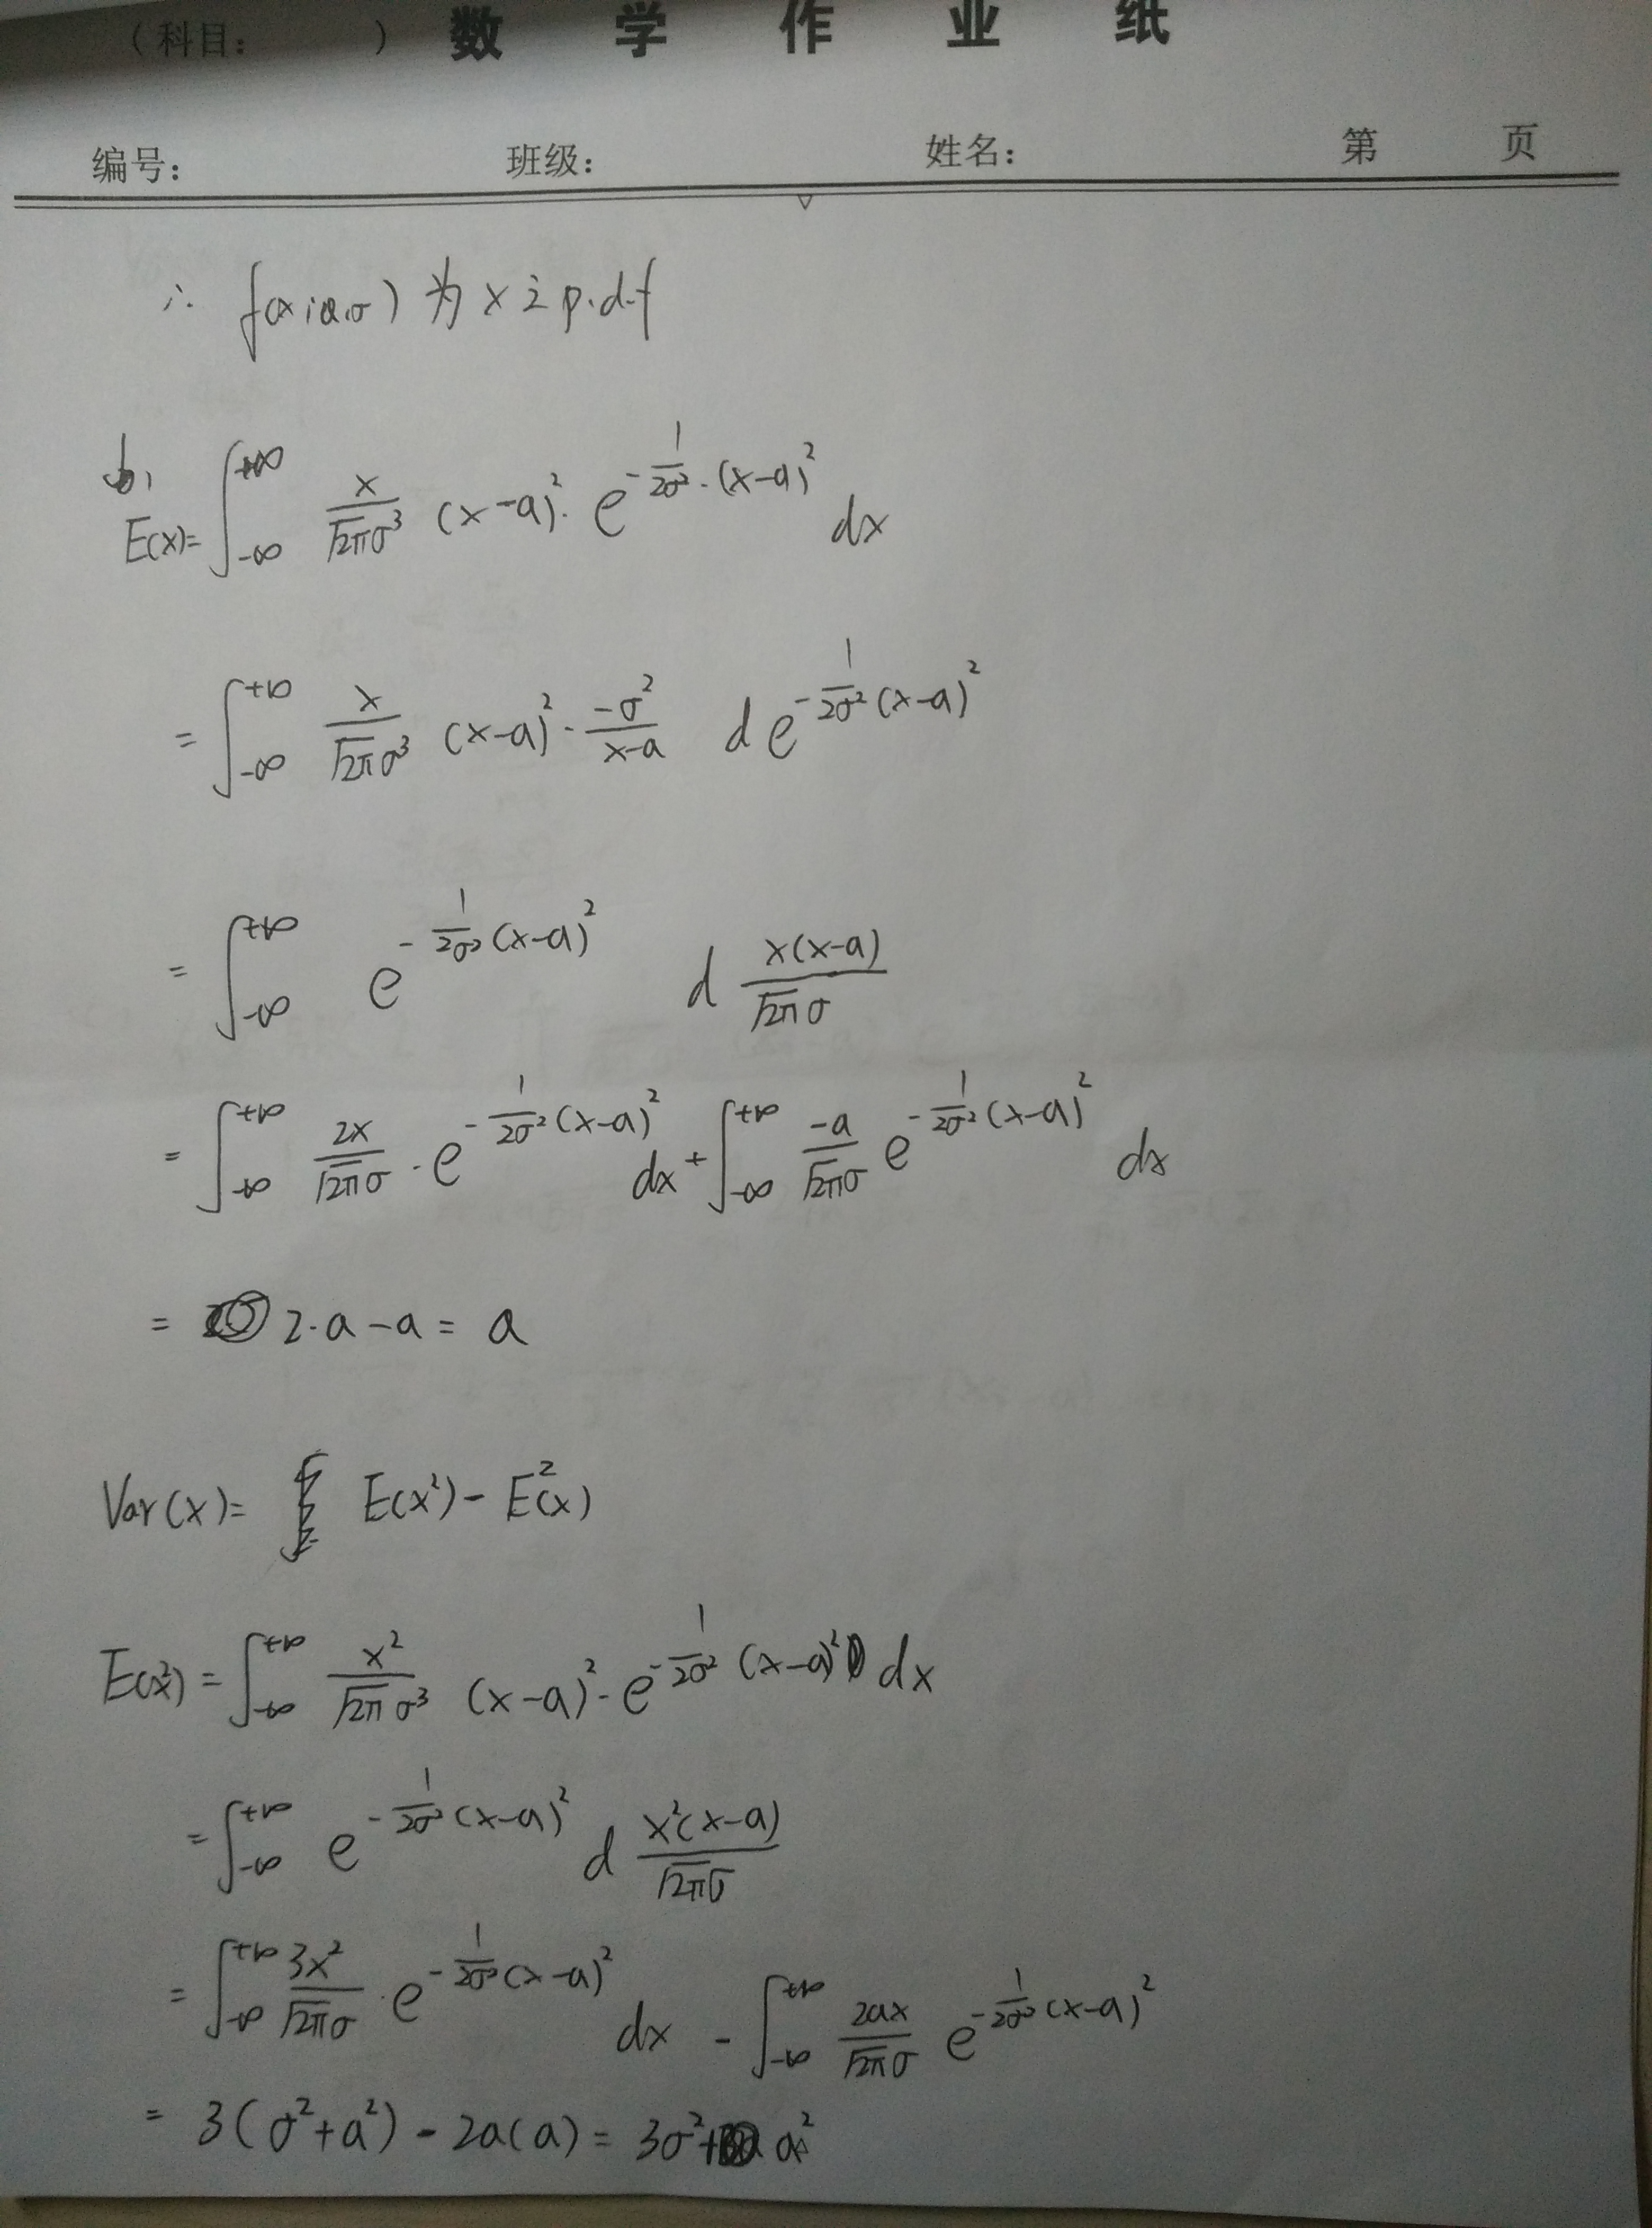 （科目：　　　）数 学 作 业 纸
编号： 班级： 姓名： 第 页
∴ f(x;a,σ) 为 x 之 p.d.f
b,
E(x)= ∫_{-∞}^{+∞} x/(√2π σ³) (x-a)²· e^{-1/(2σ²)·(x-a)²} dx
= ∫_{-∞}^{+∞} x/(√2π σ³) (x-a)²· (-σ²)/(x-a) d e^{-1/(2σ²)(x-a)²}
= ∫_{-∞}^{+∞} e^{-1/(2σ²)(x-a)²} d x(x-a)/(√2π σ)
= ∫_{-∞}^{+∞} 2x/(√2π σ) · e^{-1/(2σ²)(x-a)²} dx + ∫_{-∞}^{+∞} -a/(√2π σ) e^{-1/(2σ²)(x-a)²} dx
= 2·a-a = a
Var(x)= E(x²)- E²(x)
E(x²) = ∫_{-∞}^{+∞} x²/(√2π σ³) (x-a)²· e^{-1/(2σ²)(x-a)²} dx
= ∫_{-∞}^{+∞} e^{-1/(2σ²)(x-a)²} d x²(x-a)/(√2π σ)
= ∫_{-∞}^{+∞} 3x²/(√2π σ) · e^{-1/(2σ²)(x-a)²} dx - ∫_{-∞}^{+∞} 2ax/(√2π σ) e^{-1/(2σ²)(x-a)²}
= 3(σ²+a²) - 2a(a) = 3σ²+ a²